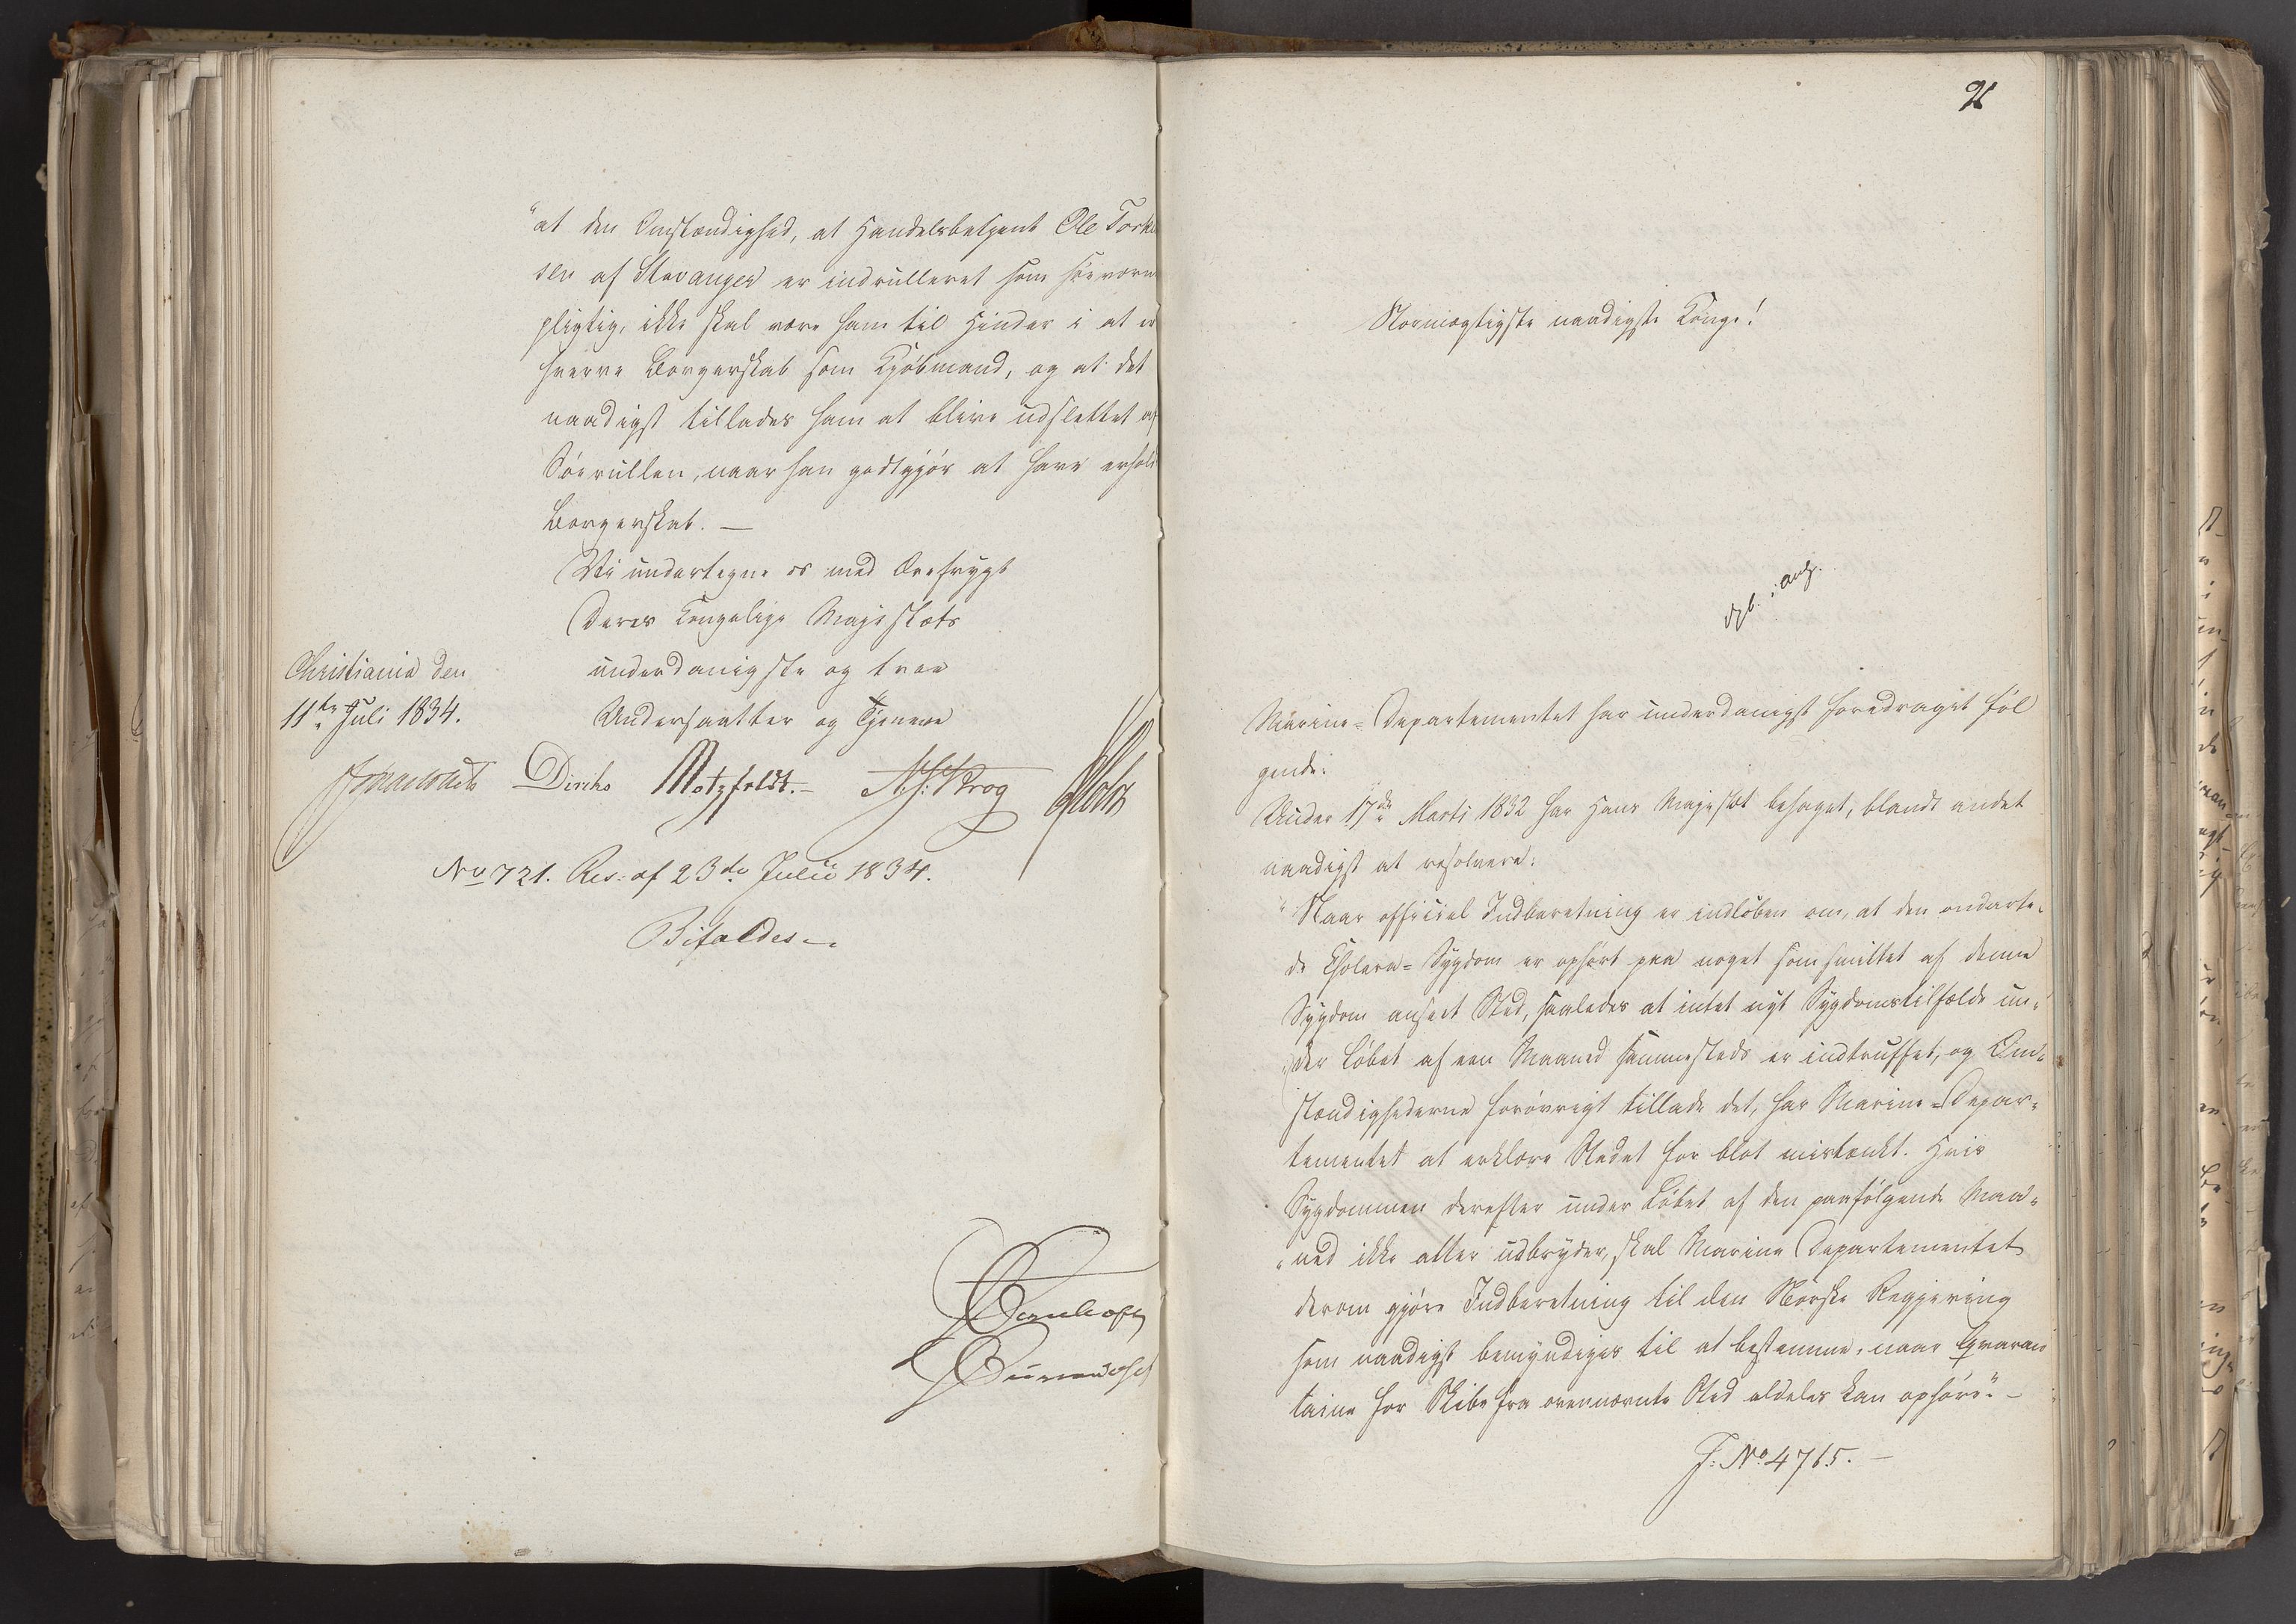 "at den Omstændighed, at Handelsbetjent Ole Tork
sen af Stavanger er indrulleret som søeværn
pligtig, ikke skal være ham til Hinder i at er
hverve Borgerskab som Kjøbmand, og at det
naadigst tillades ham at blive udslettet af
Søerullen, naar han godtgjør at have erhold
Borgerskab. —
Vi undertegne os med Ærefrygt
Deres Kongelige Majestæts
underdanigste og troe
Undersaatter og Tjenere
Christiania den
11te Juli 1834.
Diriks Motzfeldt.- N. J: Krog
No 721. Res: af 23de Julii 1834.
Bifaldes
91
Stormægtigste naadigste Konge!
Marine-Departementet har underdanigst foredraget føl
gende:
Under 17de Marti 1832 har Hans Majestæt behaget, blandt andet
naadigst at resolvere:
"Naar officiel Indberetning er indløben om, at den ondarte-
de Cholera-Sygdom er ophørt paa noget som smittet af denne
Sygdom anseet Sted, saaledes at intet nyt Sygdomstilfælde un-
der Løbet af een Maaned sammesteds er indtruffet, og Om-
stændighederne forøvrigt tillade det, har Marine-Depar-
tementet at erklære Stedet for blot mistænkt. Hvis
Sygdommen derefter under Løbet af den paafølgende Maa-
ned ikke atter udbryder, skal Marine Departementet
derom gjøre Indberetning til den Norske Regjering
som naadigst bemyndiges til at bestemme, naar Qvaran
taine for Skibe fra ovennævnte Sted aldeles kan ophøre" —
J: No 4715. —